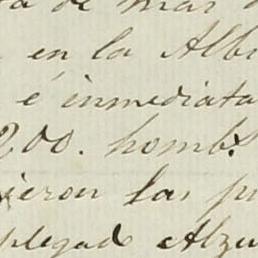 de mas
en la Alb
é inmediata
200. hombs
ieron las p
plegado Alzu